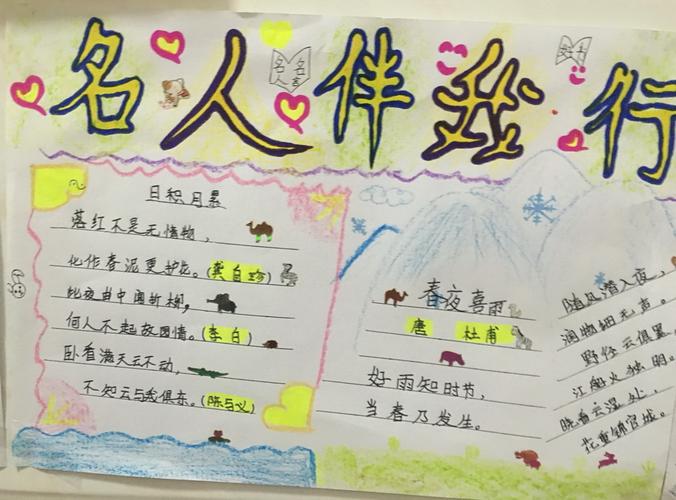 名人伴我行
名
名
好书
日积月累
落红不是无情物，
化作春泥更护花。(龚自珍)
此夜曲中闻折柳，
何人不起故园情。(李白)
卧看满天云不动，
不知云与我俱东。(陈与义)
春夜喜雨
唐 杜甫
好雨知时节，
当春乃发生。
随风潜入夜，
润物细无声。
野径云俱黑，
江船火独明。
晓看云湿处，
花重锦官城。